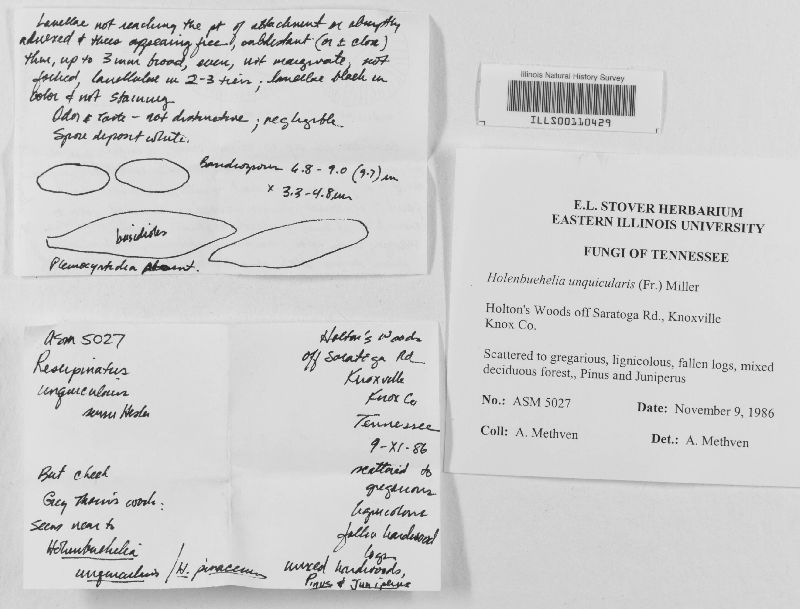 Lamellae not reaching the pt of attachment or abruptly
adnexed & thus appearing free, subdistant (or ± close)
thin, up to 3 mm broad, even, not marginate, not
forked, lamellulae in 2-3 tiers; lamellae black in
color & not staining
Odor & taste - not distinctive; negligible.
Spore deposit white.
6.8 - 9.0 (9.7) um
x 3.3-4.8 um
basidioles
Pleurocystidia absent.
Illinois Natural History Survey
ILLS00110429
E.L. STOVER HERBARIUM
EASTERN ILLINOIS UNIVERSITY
FUNGI OF TENNESSEE
Holenbuehelia unquicularis (Fr.) Miller
Holton's Woods off Saratoga Rd., Knoxville
Knox Co.
Scattered to gregarious, lignicolous, fallen logs, mixed
deciduous forest,, Pinus and Juniperus
No.: ASM 5027
Date: November 9, 1986
Coll: A. Methven
Det.: A. Methven
Asm 5027
Resupinatus
unguicularis
sensu Hesler
But check
Greg Thorn's work:
Seems near to
Hohenbuehelia
unguicularis / H. pinacearum
Holton's Woods
off Saratoga Rd
Knoxville
Knox Co
Tennessee
9-XI-86
scattered to
gregarious
lignicolous
fallen hardwood
logs
mixed hardwoods,
Pinus & Juniperus